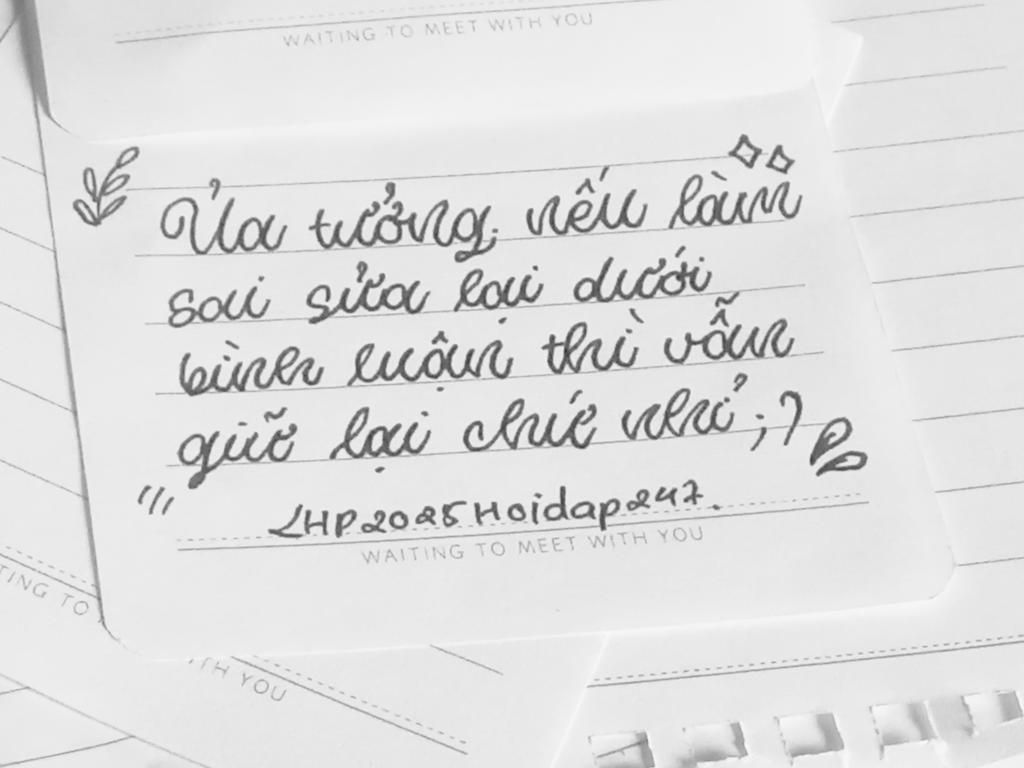 WAITING TO MEET WITH YOU
Ủa tưởng nếu làm
sai sửa lại dưới
bình luận thì vẫn
giữ lại chứ nhỉ ;?
LHP2025Hoidap247.
WAITING TO MEET WITH YOU
TING TO
ITH YOU